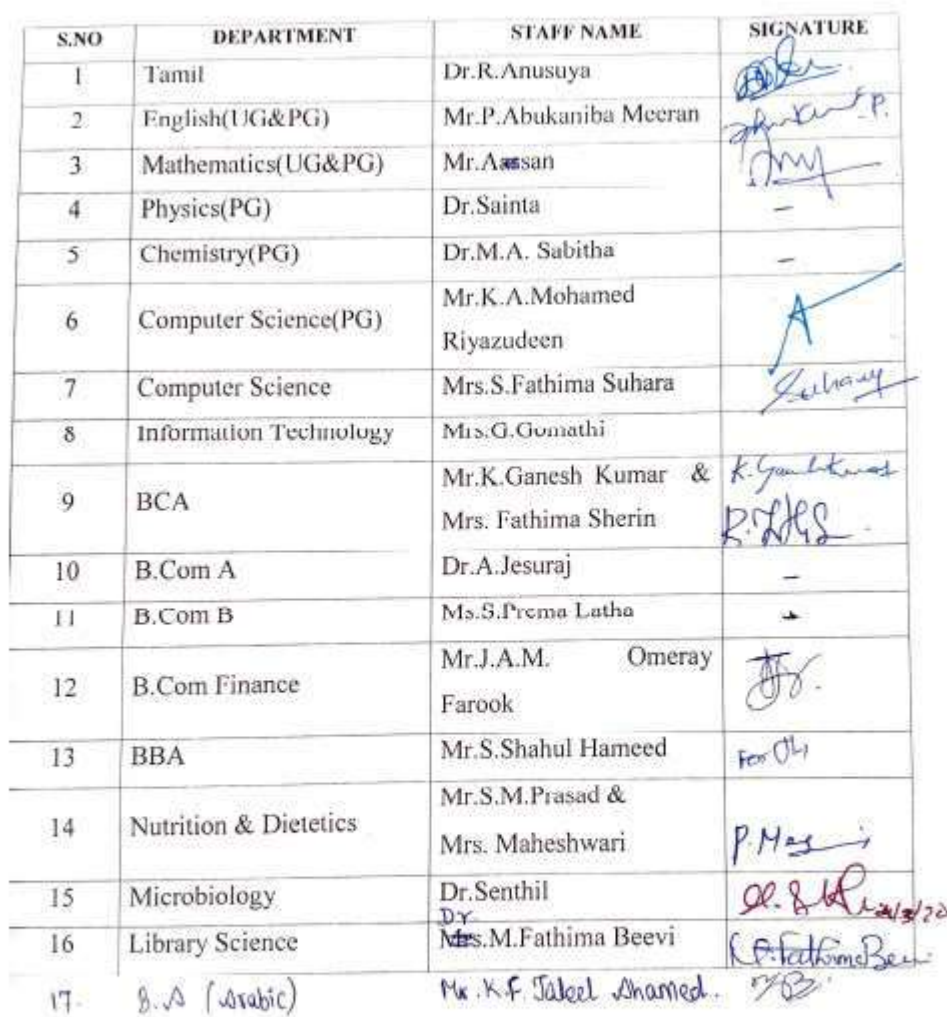 S.NO DEPARTMENT STAFF NAME SIGNATURE
1 Tamil Dr.R.Anusuya
2 English(UG&PG) Mr.P.Abukaniba Meeran
3 Mathematics(UG&PG) Mr.Aassan
4 Physics(PG) Dr.Sainta –
5 Chemistry(PG) Dr.M.A. Sabitha –
6 Computer Science(PG) Mr.K.A.Mohamed
Riyazudeen
7 Computer Science Mrs.S.Fathima Suhara
8 Information Technology Mrs.G.Gomathi
9 BCA Mr.K.Ganesh Kumar & K. Ganesh Kumar
Mrs. Fathima Sherin
10 B.Com A Dr.A.Jesuraj –
11 B.Com B Ms.S.Prema Latha -
12 B.Com Finance Mr.J.A.M. Omeray
Farook
13 BBA Mr.S.Shahul Hameed For
14 Nutrition & Dietetics Mr.S.M.Prasad &
Mrs. Maheshwari
15 Microbiology Dr.Senthil
Dr
16 Library Science Mrs.M.Fathima Beevi Fathima Beevi
17. B.A (Arabic) Mr.K.F. Jaleel Ahamed.